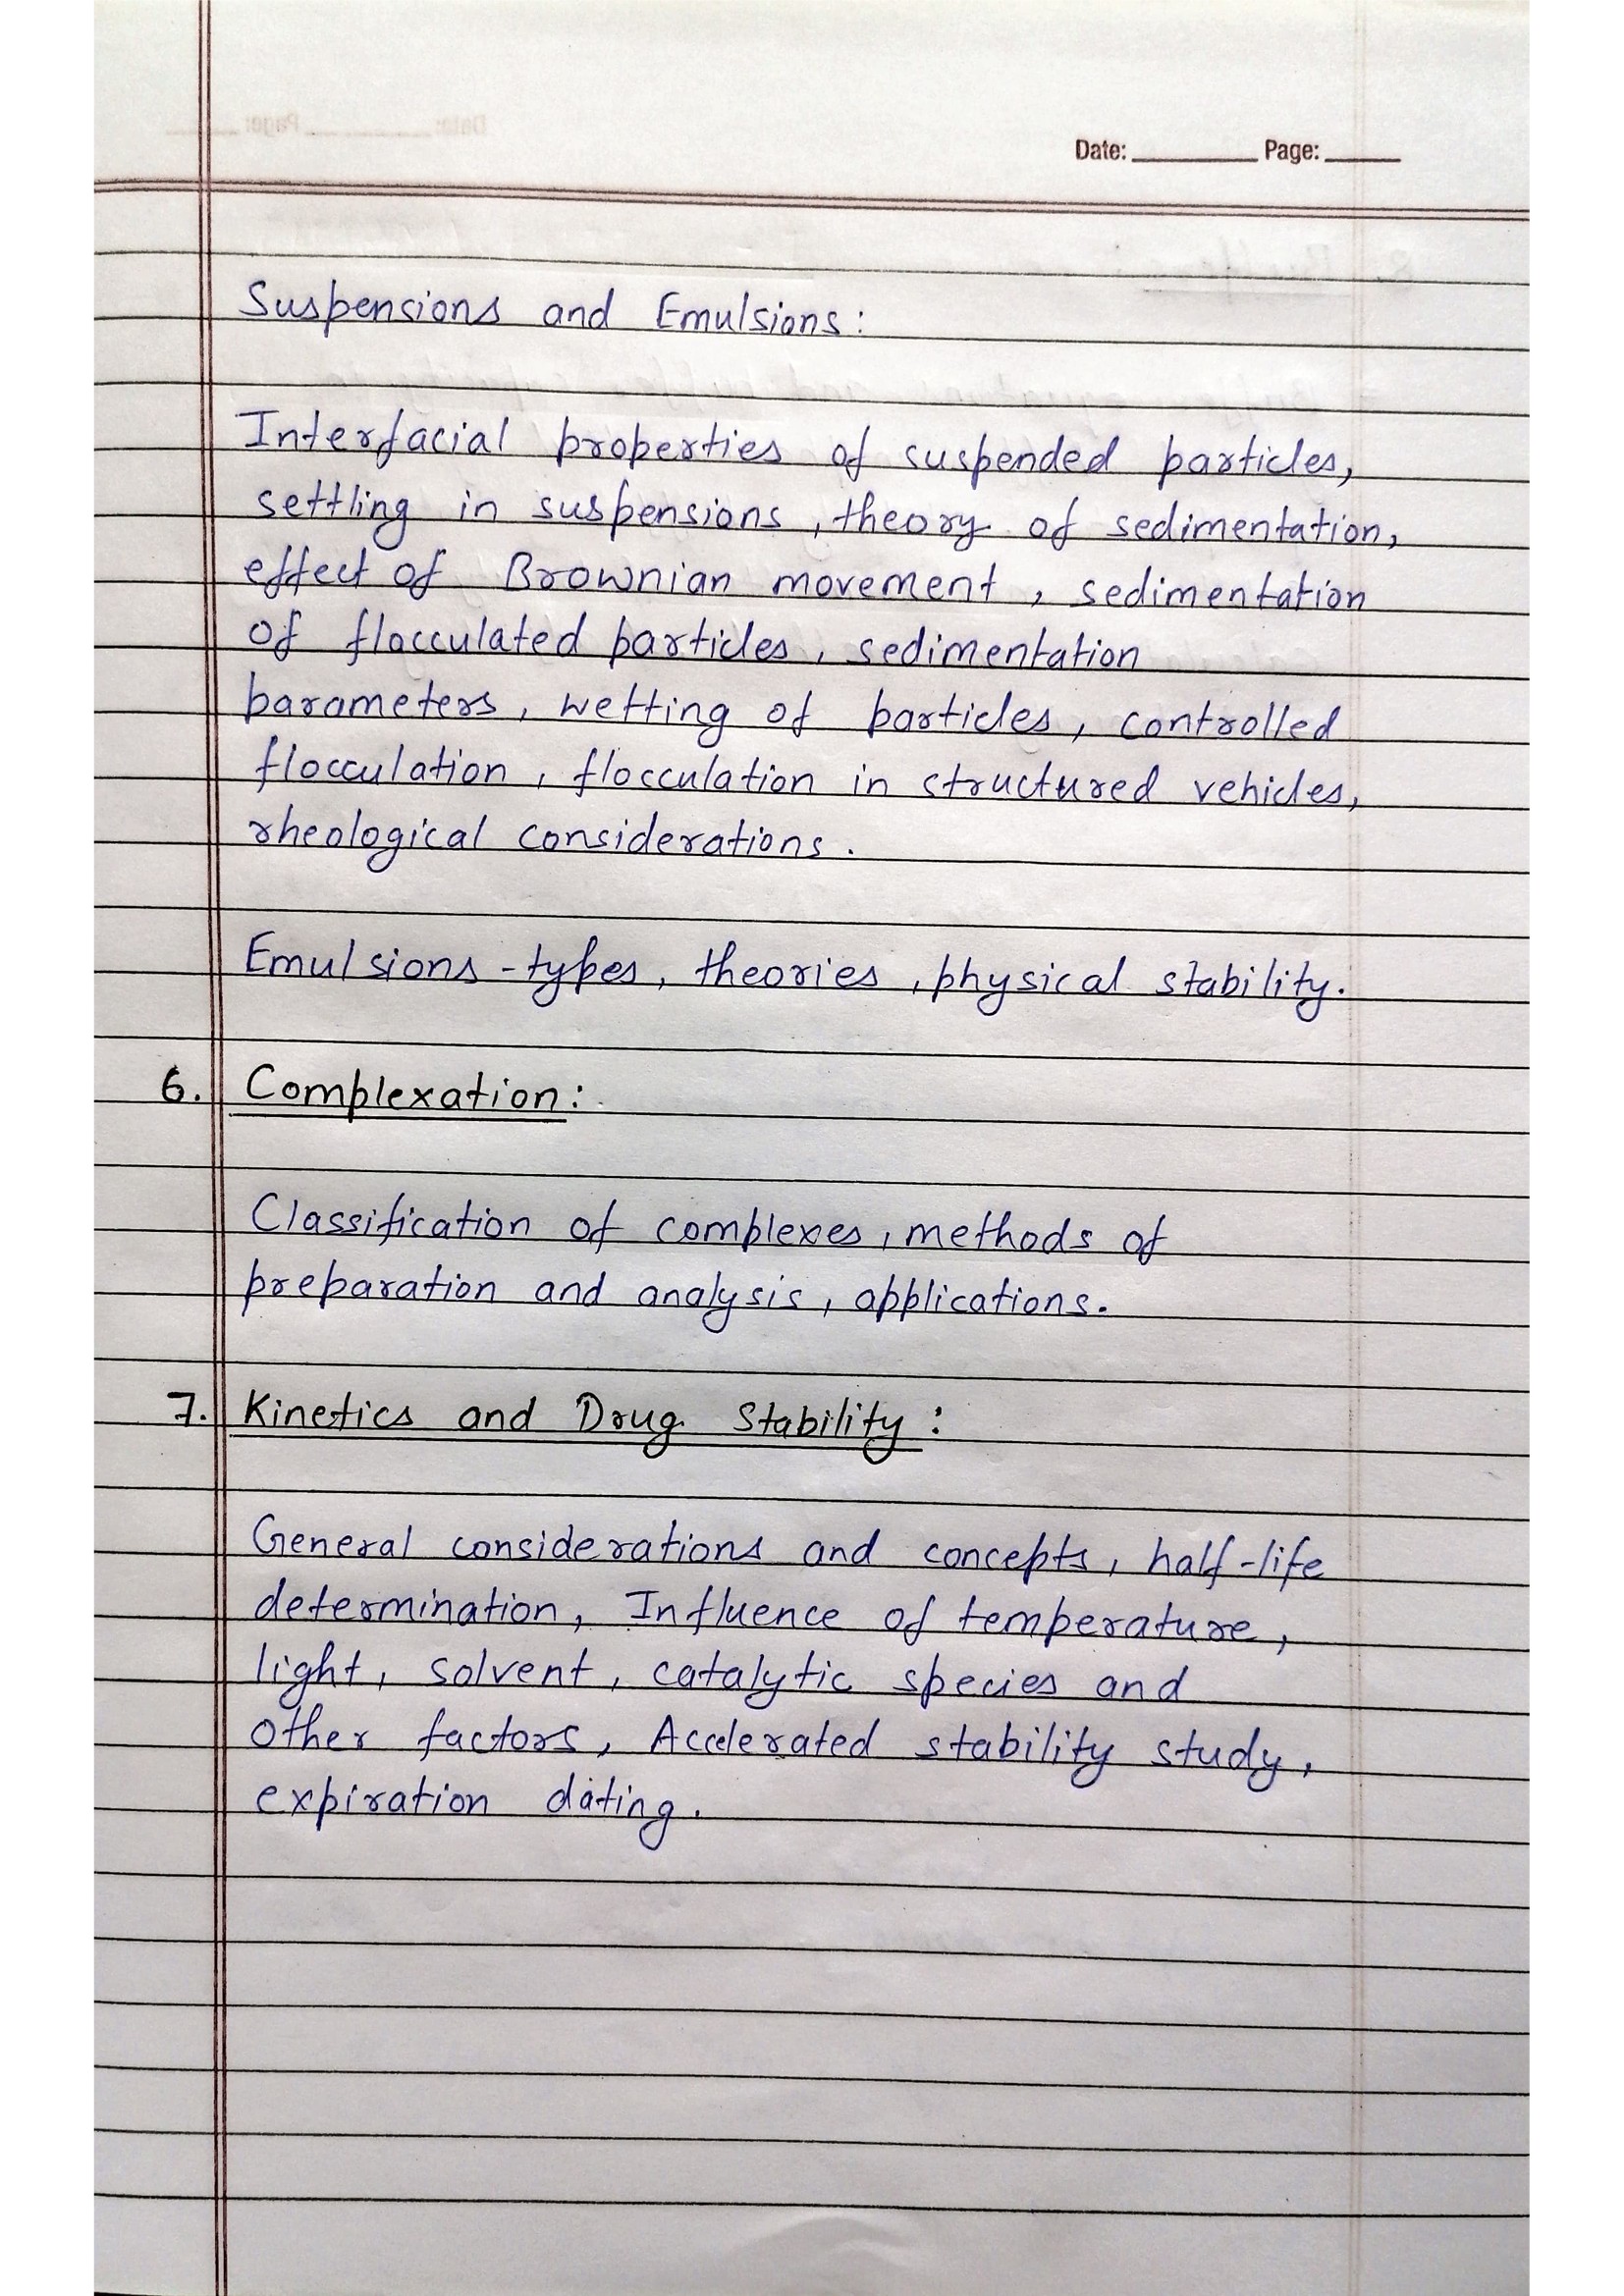 Date: Page:
Suspensions and Emulsions:
Interfacial properties of suspended particles,
settling in suspensions, theory of sedimentation,
effect of Brownian movement, sedimentation
of flocculated particles, sedimentation
parameters, wetting of particles, controlled
flocculation, flocculation in structured vehicles,
rheological considerations.
Emulsions - types, theories, physical stability.
6. Complexation:
Classification of complexes, methods of
preparation and analysis, applications.
7. Kinetics and Drug Stability:
General considerations and concepts, half-life
determination, Influence of temperature,
light, solvent, catalytic species and
other factors, Accelerated stability study,
expiration dating.